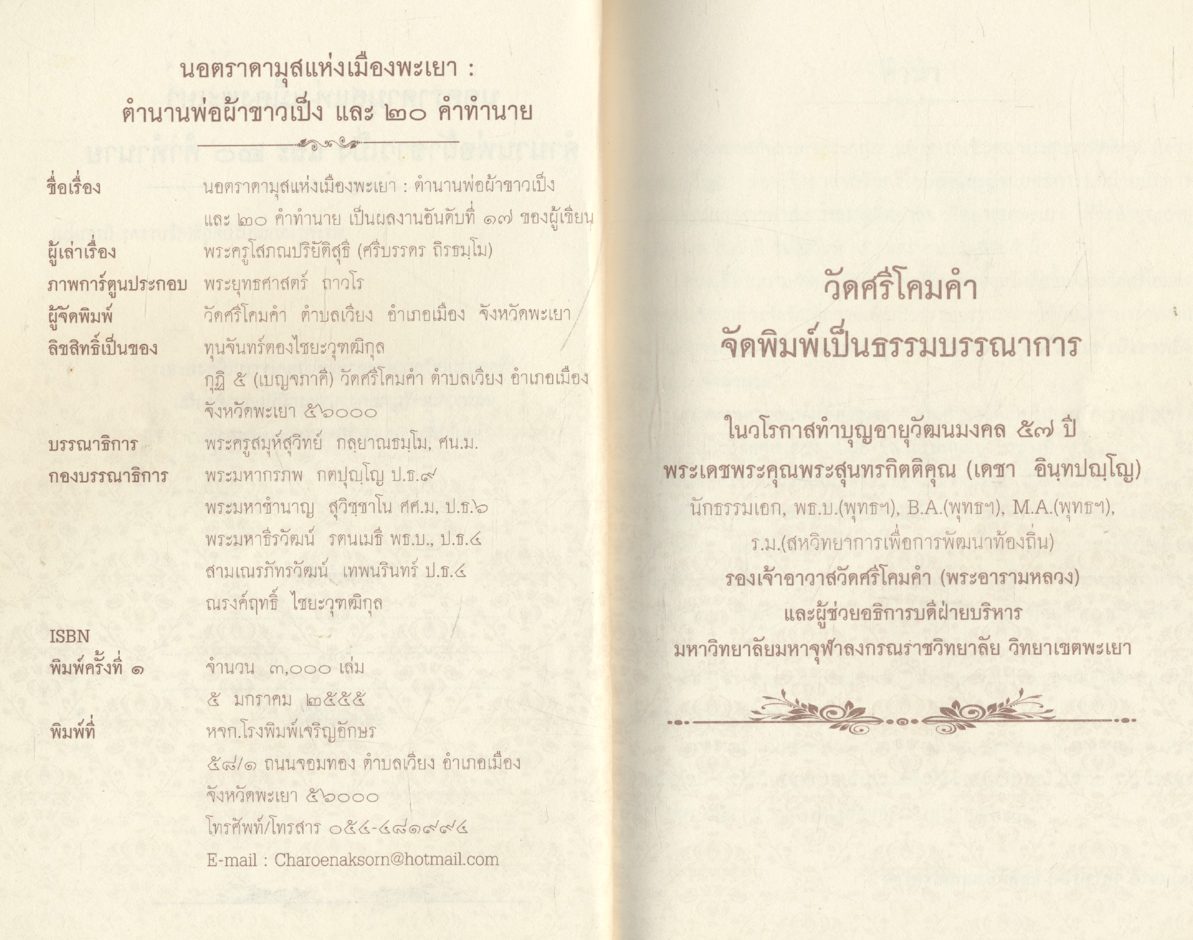 นอตราดามุสแห่งเมืองพะเยา :
ตำนานพ่อผ้าขาวเป็ง และ ๒๐ คำทำนาย
ชื่อเรื่อง นอตราดามุสแห่งเมืองพะเยา : ตำนานพ่อผ้าขาวเป็ง
และ ๒๐ คำทำนาย เป็นผลงานอันดับที่ ๑๗ ของผู้เขียน
ผู้เล่าเรื่อง พระครูโสภณปริยัติสุธี (ศรีบรรดร ถิรธมฺโม)
ภาพการ์ตูนประกอบ พระยุทธศาสตร์ ถาวโร
ผู้จัดพิมพ์ วัดศรีโคมคำ ตำบลเวียง อำเภอเมือง จังหวัดพะเยา
ลิขสิทธิ์เป็นของ ทุนจันทร์ตองไชยะวุฑฒิกุล
กุฏิ ๕ (เบญจภาคี) วัดศรีโคมคำ ตำบลเวียง อำเภอเมือง
จังหวัดพะเยา ๕๖๐๐๐
บรรณาธิการ พระครูสมุห์สุวิทย์ กลฺยาณธมฺโม, ศน.ม.
กองบรรณาธิการ พระมหากรภพ กตปุญฺโญ ป.ธ.๙
พระมหาชำนาญ สุวิชฺชาโน ศศ.ม, ป.ธ.๖
พระมหาธีรวัฒน์ รตนเมธี พธ.บ., ป.ธ.๔
สามเณรภัทรวัฒน์ เทพนรินทร์ ป.ธ.๔
ณรงค์ฤทธิ์ ไชยะวุฑฒิกุล
ISBN
พิมพ์ครั้งที่ ๑ จำนวน ๓,๐๐๐ เล่ม
๕ มกราคม ๒๕๕๕
พิมพ์ที่ หจก.โรงพิมพ์เจริญอักษร
๕๘/๑ ถนนจอมทอง ตำบลเวียง อำเภอเมือง
จังหวัดพะเยา ๕๖๐๐๐
โทรศัพท์/โทรสาร ๐๕๔-๔๘๑๙๙๔
E-mail : Charoenaksorn@hotmail.com
วัดศรีโคมคำ
จัดพิมพ์เป็นธรรมบรรณาการ
ในวโรกาสทำบุญอายุวัฒนมงคล ๕๗ ปี
พระเดชพระคุณพระสุนทรกิตติคุณ (เดชา อินฺทปญฺโญ)
นักธรรมเอก, พธ.บ.(พุทธฯ), B.A.(พุทธฯ), M.A.(พุทธฯ),
ร.ม.(สหวิทยาการเพื่อการพัฒนาท้องถิ่น)
รองเจ้าอาวาสวัดศรีโคมคำ (พระอารามหลวง)
และผู้ช่วยอธิการบดีฝ่ายบริหาร
มหาวิทยาลัยมหาจุฬาลงกรณราชวิทยาลัย วิทยาเขตพะเยา